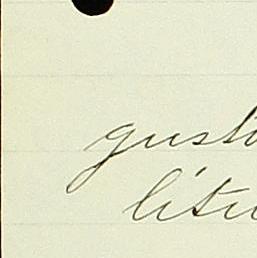 gusta
litu